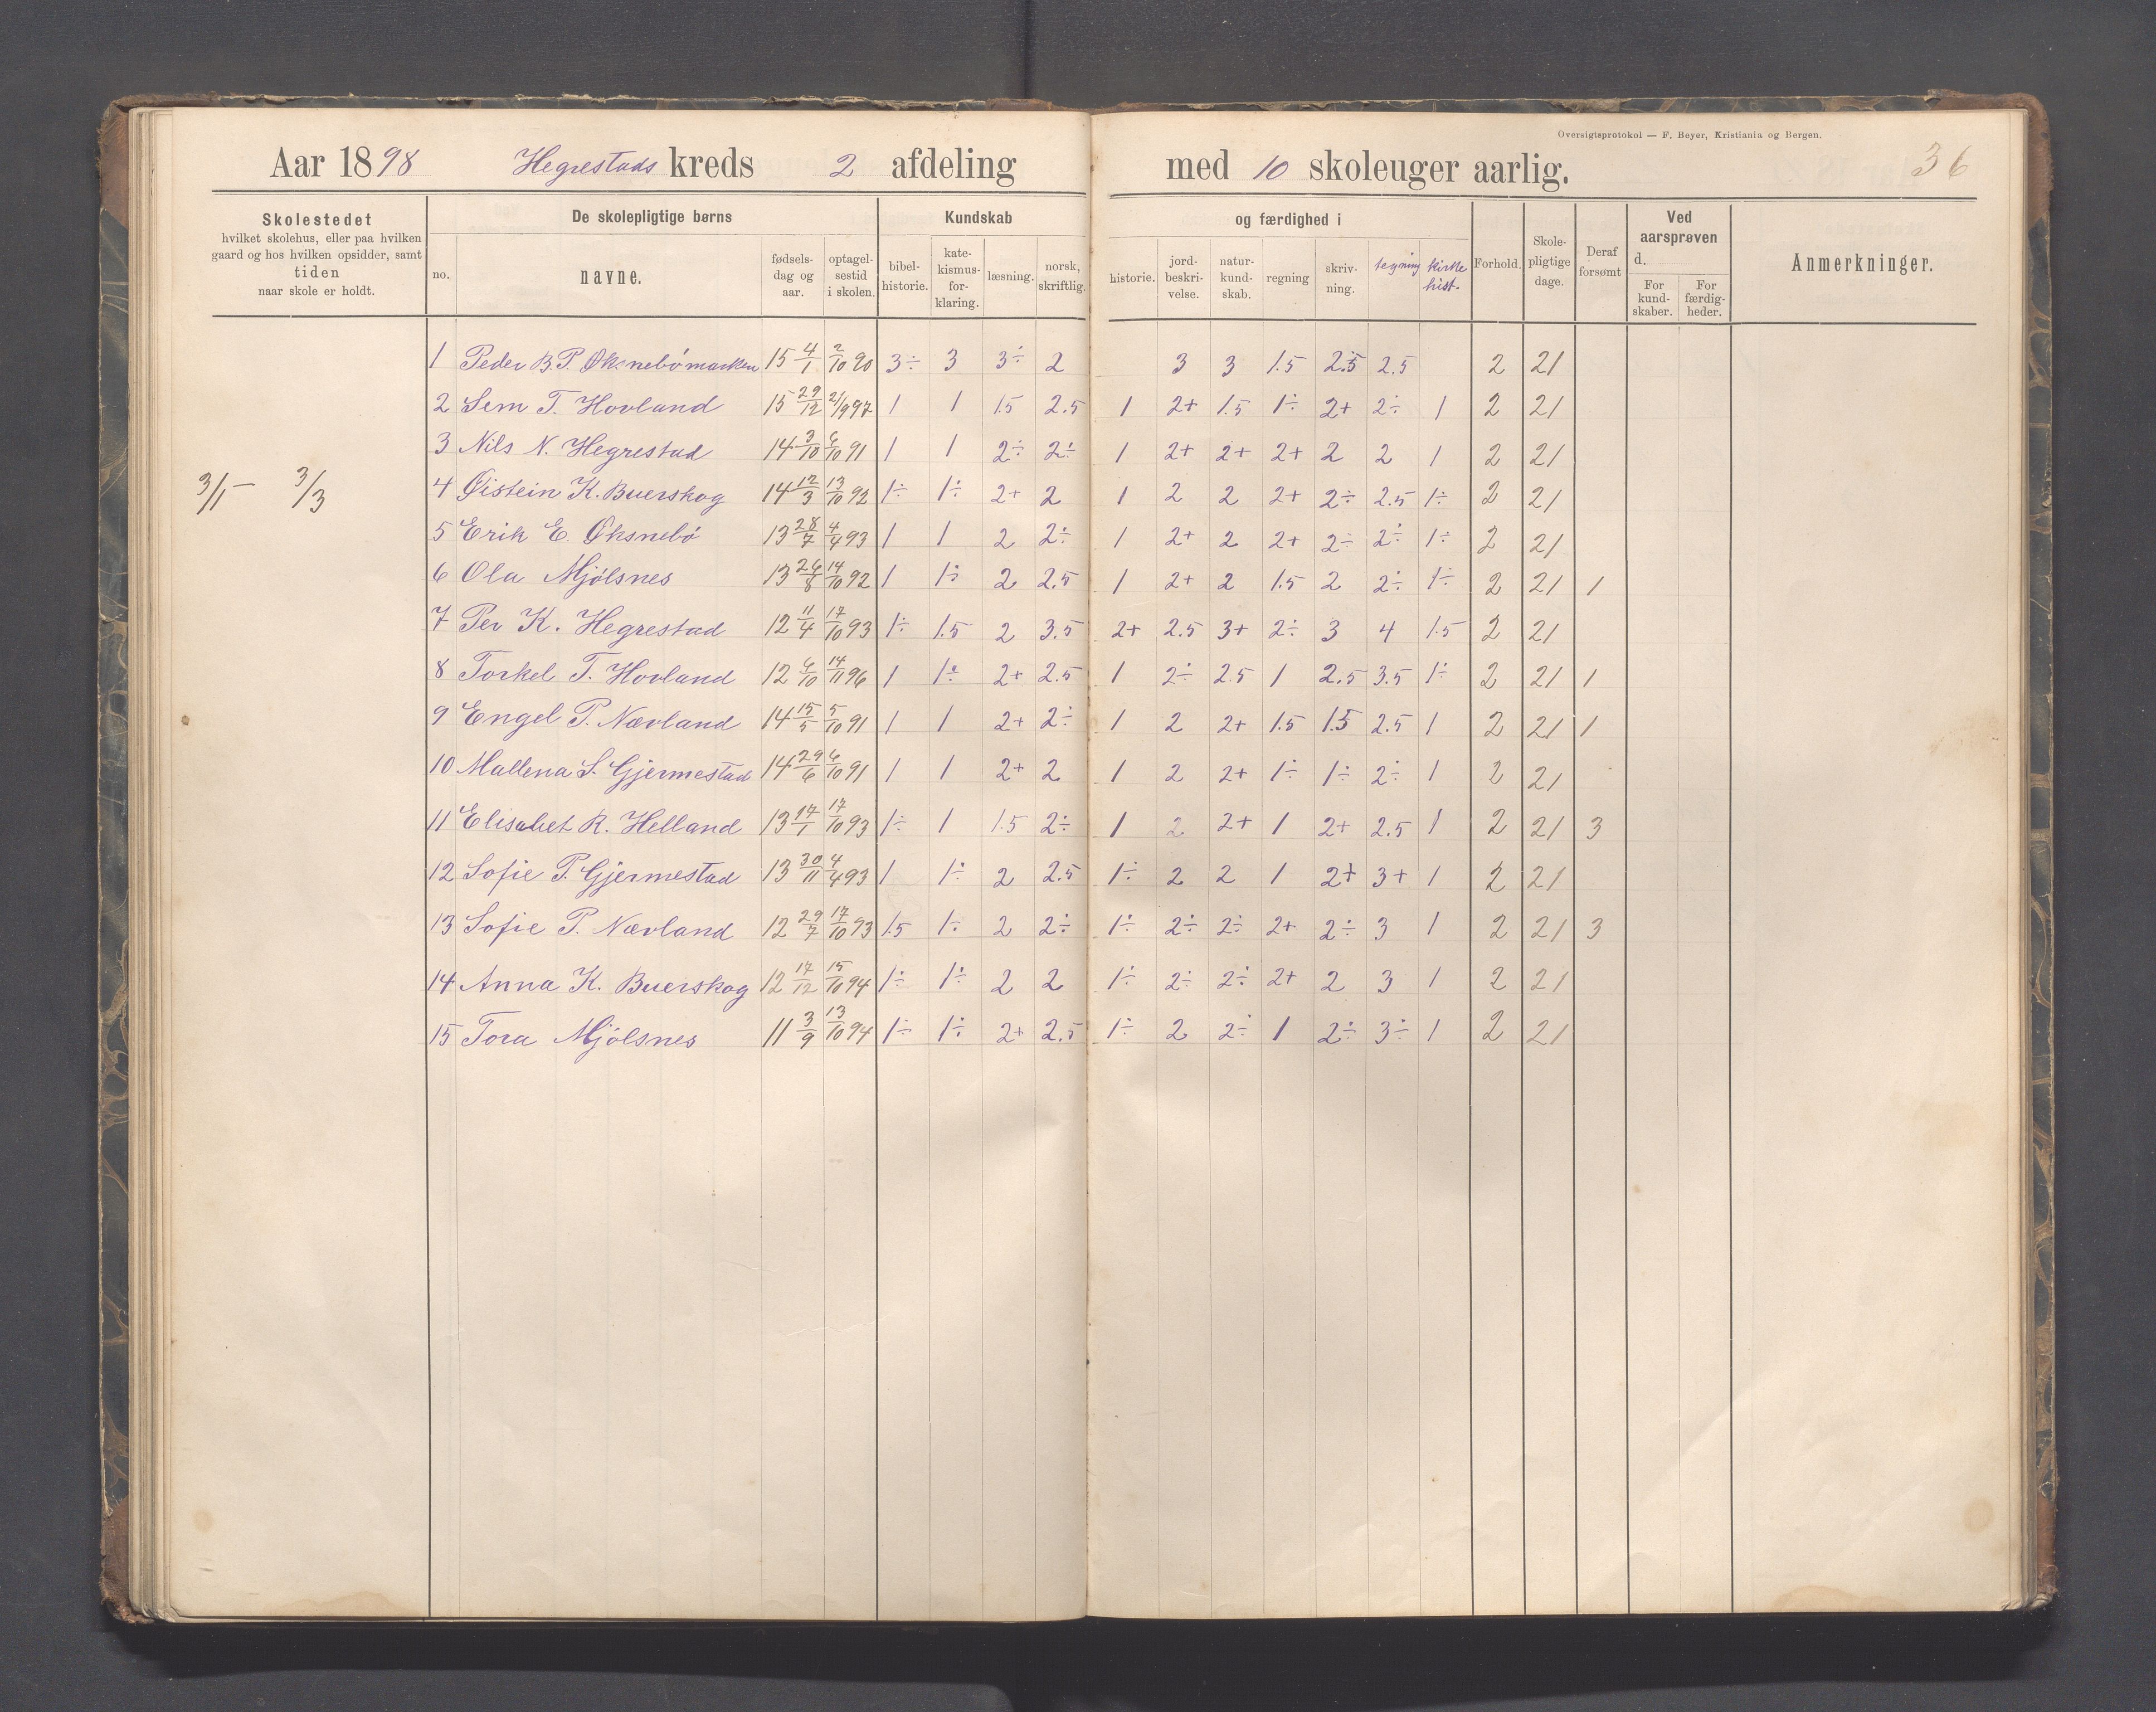 Oversigtsprotokol — F. Beyer, Kristiania og Bergen.
Aar 1898 Hegrestads kreds 2 afdeling med 10 skoleuger aarlig. 36
Skolestedet
hvilket skolehus, eller paa hvilken
gaard og hos hvilken opsidder, samt
tiden
naar skole er holdt.
De skolepligtige børns
no.
navne.
fødsels-
dag og
aar.
optagel-
sestid
i skolen.
Kundskab
bibel-
historie.
kate-
kismus-
for-
klaring.
læsning.
norsk,
skriftlig.
og færdighed i
historie.
jord-
beskri-
velse.
natur-
kund-
skab.
regning
skriv-
ning.
tegning
kirke
hist.
Forhold.
Skole-
pligtige
dage.
Deraf
forsømt
Ved
aarsprøven
d.
For
kund-
skaber.
For
færdig-
heder.
Anmerkninger.
1 Peder B.P. Øksnebømarken 15 4/1 2/10 90 3÷ 3 3÷ 2 3 3 1.5 2.5 2.5 2 21
2 Sem T. Hovland 15 29/12 21/9 97 1 1 1.5 2.5 1 2+ 1.5 1÷ 2+ 2÷ 1 2 21
3 Nils N. Hegrestad 14 3/10 6/10 91 1 1 2÷ 2÷ 1 2+ 2+ 2+ 2 2 1 2 21
3/1 – 3/3
4 Øistein K. Buerskog 14 12/3 13/10 92 1÷ 1÷ 2+ 2 1 2 2 2+ 2÷ 2.5 1÷ 2 21
5 Erik E. Øksnebø 13 28/7 4/4 93 1 1 2 2÷ 1 2+ 2 2+ 2÷ 2÷ 1÷ 2 21
6 Ola Mjölsnes 13 26/8 14/10 92 1 1÷ 2 2.5 1 2+ 2 1.5 2 2÷ 1÷ 2 21 1
7 Per K. Hegrestad 12 11/4 17/10 93 1÷ 1.5 2 3.5 2+ 2.5 3+ 2÷ 3 4 1.5 2 21
8 Torkel T. Hovland 12 6/10 14/11 96 1 1÷ 2+ 2.5 1 2÷ 2.5 1 2.5 3.5 1÷ 2 21 1
9 Engel P. Nævland 14 15/5 5/10 91 1 1 2+ 2÷ 1 2 2+ 1.5 1.5 2.5 1 2 21 1
10 Mallena S. Gjermestad 14 29/6 6/10 91 1 1 2+ 2 1 2 2+ 1÷ 1÷ 2÷ 1 2 21
11 Elisabet R. Helland 13 17/1 17/10 93 1÷ 1 1.5 2÷ 1 2 2+ 1 2+ 2.5 1 2 21 3
12 Sofie P. Gjermestad 13 30/11 4/4 93 1 1÷ 2 2.5 1÷ 2 2 1 2+ 3+ 1 2 21
13 Sofie P. Nævland 12 29/7 17/10 93 1.5 1÷ 2 2÷ 1÷ 2÷ 2÷ 2+ 2÷ 3 1 2 21 3
14 Anna K. Buerskog 12 17/12 15/10 94 1÷ 1÷ 2 2 1÷ 2÷ 2÷ 2+ 2 3 1 2 21
15 Tora Mjölsnes 11 3/9 13/10 94 1÷ 1÷ 2+ 2.5 1÷ 2 2÷ 1 2÷ 3÷ 1 2 21